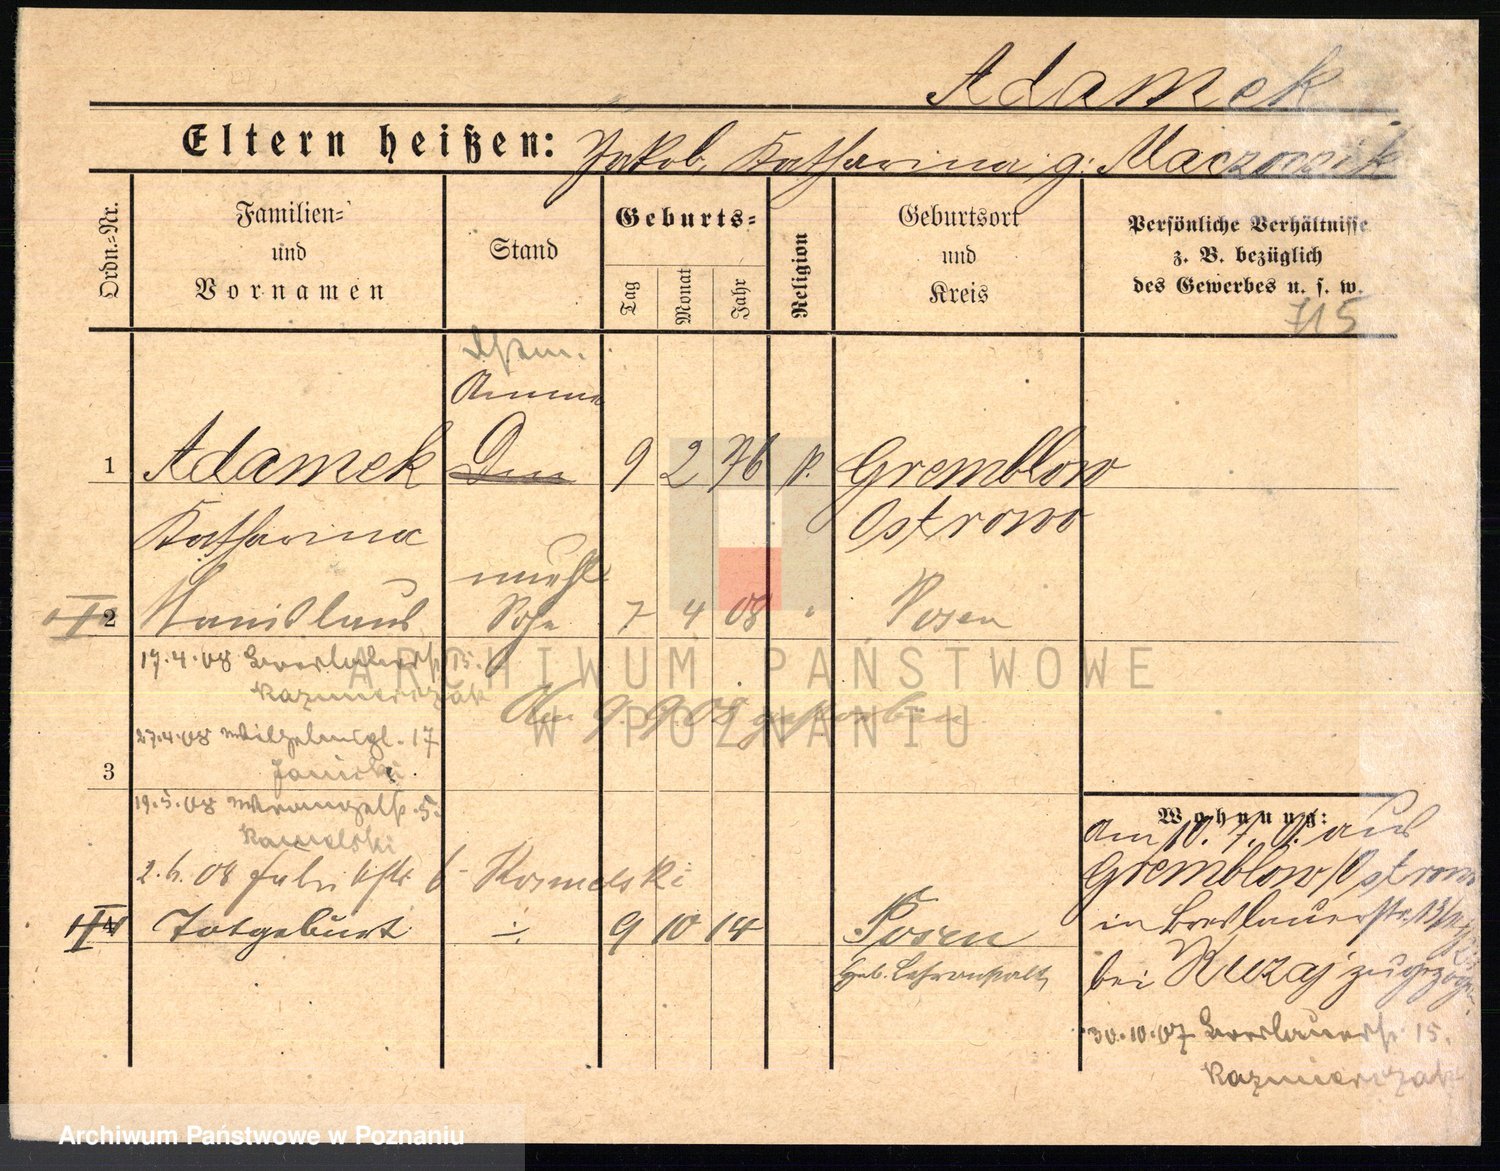 Adamek
Eltern heißen: Jakob, Katharina g.
Ordn.-Nr.
Familien-
und
Vornamen
Stand
Geburts-
Tag
Monat
Jahr
Religion
Geburtsort
und
Kreis
Persönliche Verhältnisse
z. B. bezüglich
des Gewerbes u. s. w.
715
Amme
1 Adamek 9 2 76 k. Gremblow
Katharina Ostrowo
unehl
2 Stanislaus Sohn 7 4 08 " Posen
17.4.08 Breslauerstr 15.
Kazmierczak
Am 9.9.08 gestorben
27.4.08 Wilhelmspl. 17
Janicki
3
19.5.08 Wrangelstr. 5.
2.6.08 6
4 Totgeburt ÷ 9 10 14 Posen
Heb. Lehranstalt
Wohnung:
am 10.7. aus
Gremblow/Ostrowo
in Breslauerstr.
bei Kuzaj zugezogen.
30.10.07 Breslauerstr. 15.
Kazmierczak
ARCHIWUM PAŃSTWOWE
W POZNANIU
Archiwum Państwowe w Poznaniu